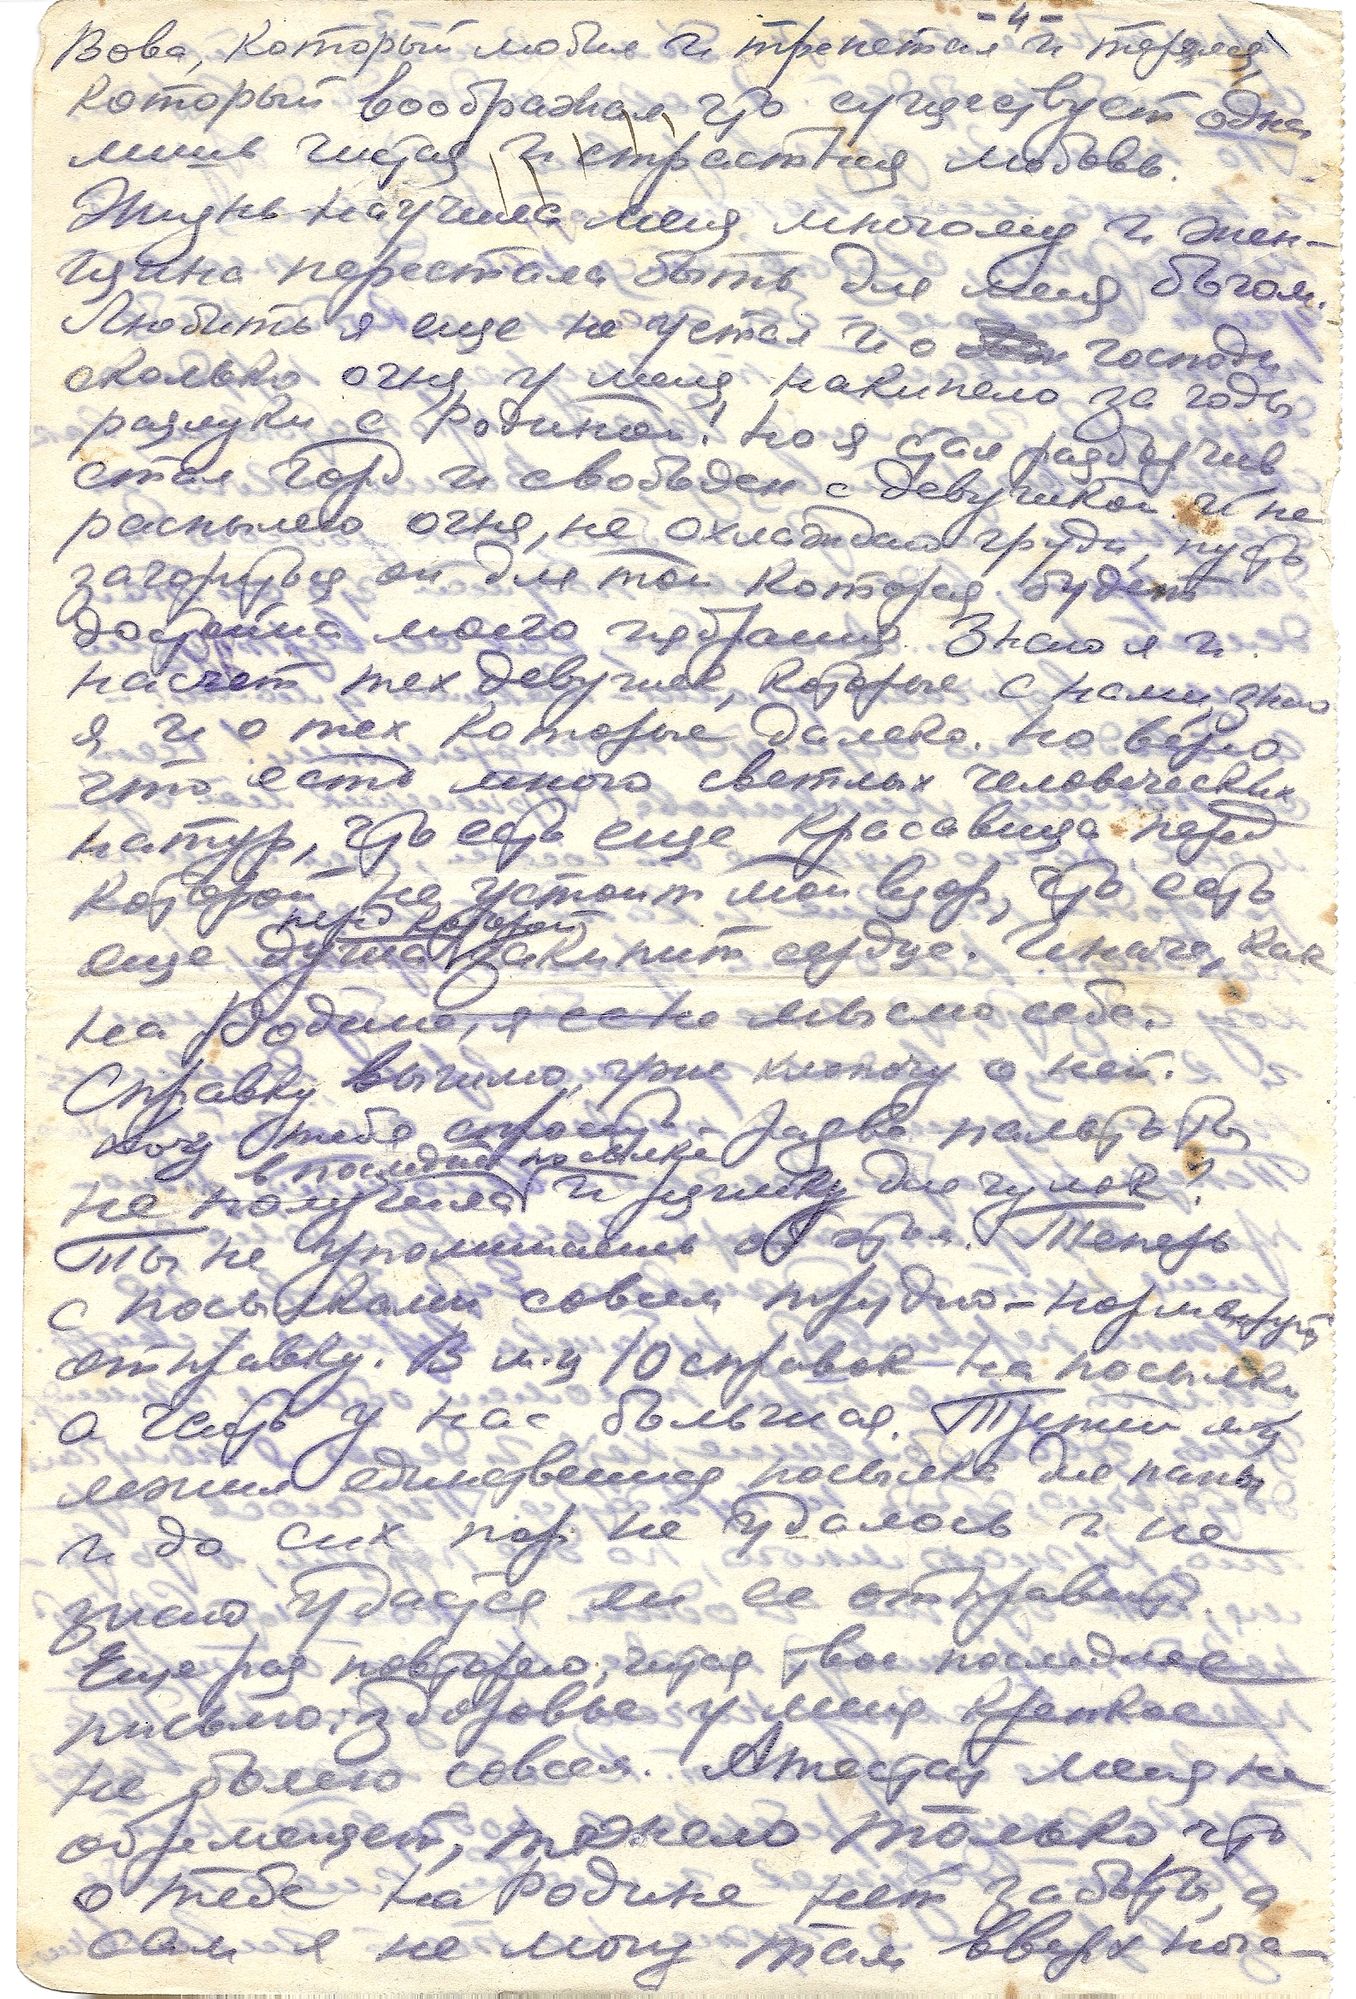 -4-
Вова, который любил и трепетал и терялся,
который воображал что существует одна
лишь чистая и страстная любовь.
Жизнь научила меня многому и жен-
щина перестала быть для меня богом.
Любить я еще не устал и о господи
сколько огня у меня накипело за годы
разлуки с Родиной! Но я стал разборчив
стал горд и свободен с девушкой и не
распыляю огня, не охлаждаю груди, пусть
загориться он для той которая будет
достойна моего избрания. Знаю я и
насчет тех девушек, которые с нами, знаю
я и о тех которые далеко. Но верю
что есть много светлых человеческих
натур, что есть еще красавица перед
которой не устоит мой взор, что есть
перед которой
еще душа закипит сердце. Иначе, как
на Родине, я не мыслю себе.
Справку вышлю, уже хлопочу о ней.
Хочу тебя спросить - разве пальто ты
в последней посылке
не получила и для чулок?
Ты не упоминаешь об этом. Теперь
с посылками совсем трудно - нормируют
отправку. В м-ц 10 справок на посылки
а часть у нас большая. Третий м-ц
лежит единственная посылка для папы
и до сих пор не удалось и не
знаю удастся ли ее отправить.
Еще раз повторяю, читая твое последнее
письмо: здоровье у меня крепкое
не болею совсем. Атестат меня не
обременяет, тяжело только что
о тебе на родине нет заботы, а
сам я не могу там вверх нога-